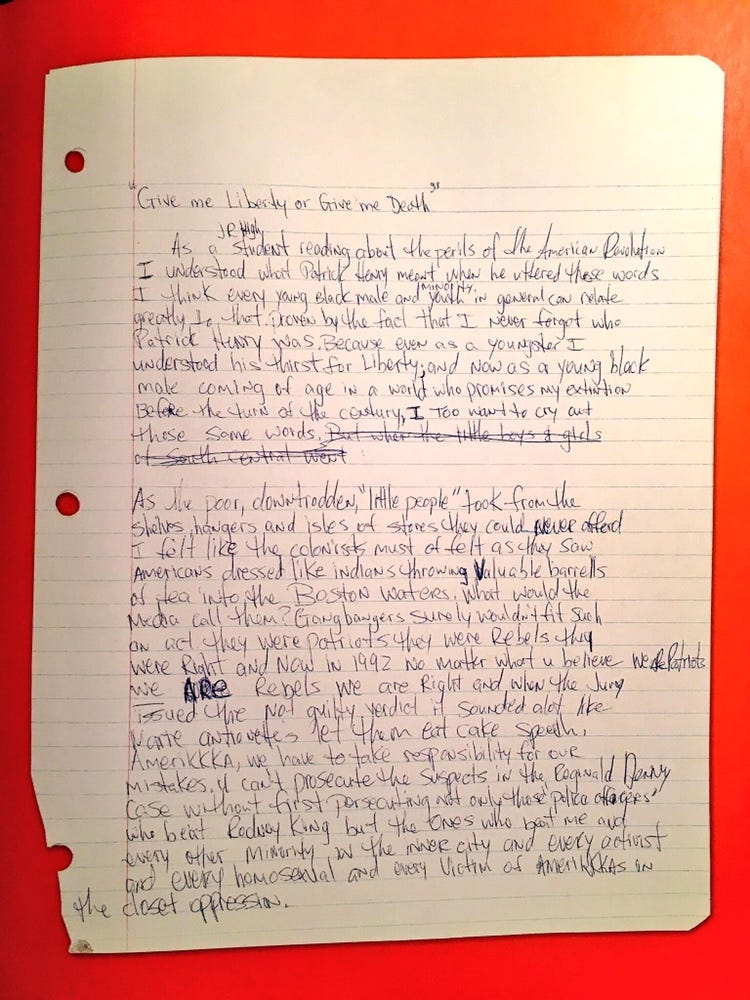 "Give me Liberty or Give me Death"
JR High
As a student reading about the perils of the American Revolution
I understood what Patrick Henry meant when he uttered those words
MINORITY
I think every young Black male and youth in general can relate
greatly to that. proven by the fact that I never forgot who
Patrick Henry was. Because even as a youngster I
understood his thirst for Liberty, and now as a young black
male coming of age in a world who promises my extintion
Before the turn of the century, I too want to cry out
those same words. But when the little boys & girls
of South Central went
As the poor, downtrodden, "little people" took from the
shelves, hangers and isles of stores they could never afford
I felt like the colonists must of felt as they saw
Americans dressed like indians throwing Valuable barrells
of tea into the Boston Waters. What would the
Media call them? Gangbangers surely wouldn't fit such
an act. they were patriots they were Rebels they
were Right and Now in 1992 no matter what u believe we Are Patriots
We ARE Rebels we are Right and when the Jury
issued the Not guilty verdict it sounded alot like
Marie antionette's let them Eat cake speech.
AmeriKKKA, we have to take responsibility for our
mistakes. U can't prosecute the suspects in the Reginald Denny
case without first persecuting not only those police officers'
who beat Rodney King but the ones who beat me and
every other minority in the inner city and every activist
and every homosexual and every victim of AmeriKKKAs in
the closet oppressin.